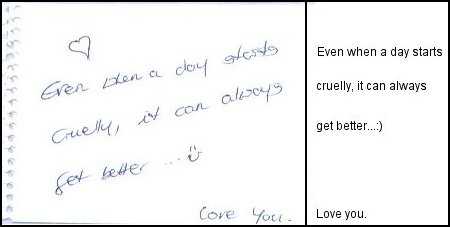 Even when a day starts
cruelly, it can always
get better...:)
Love you.
Even when a day starts
cruelly, it can always
get better...:)
Love you.